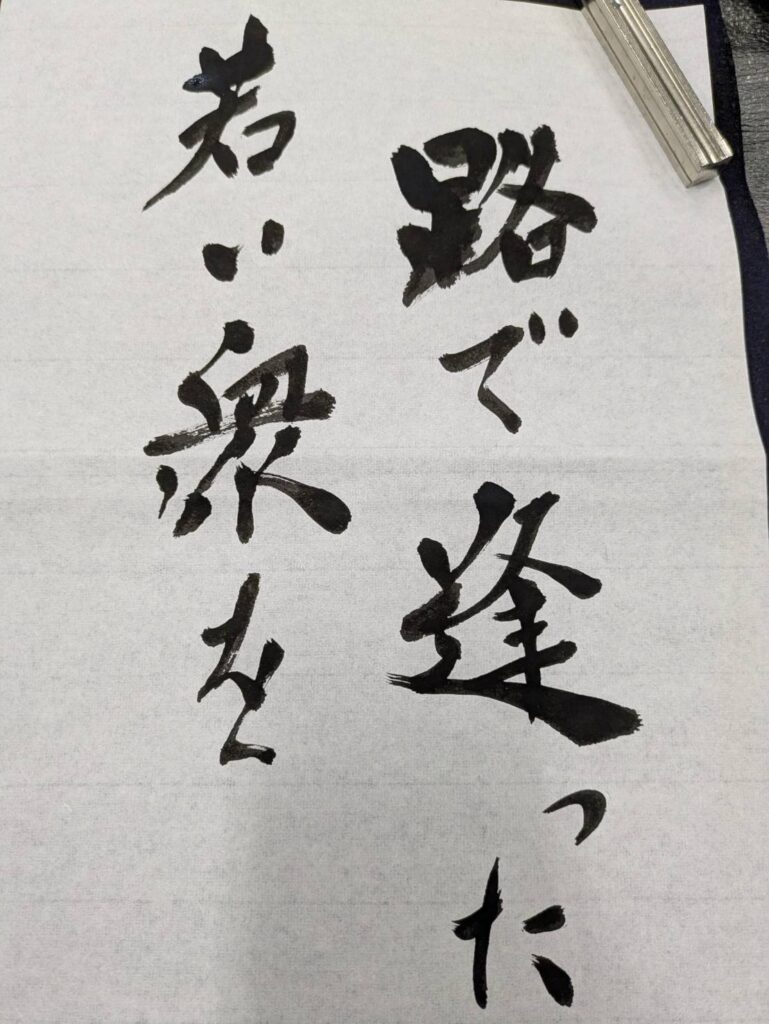 路で逢った
若い衆を